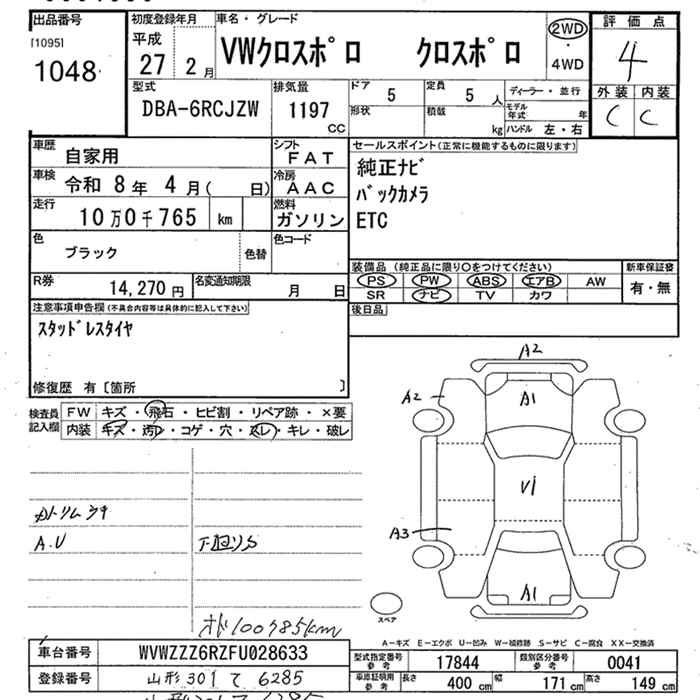 出品番号
[1095]
1048
初度登録年月
平成
27 2月
車名・グレード
VWクロスポロ クロスポロ
2WD
・
4WD
評価点
4
外装 内装
C C
型式
DBA-6RCJZW
排気量
1197
CC
ドア
5
定員
5人
形状
積載
kg
ディーラー・並行
モデル年式 年
ハンドル 左・右
車歴
自家用
シフト
FAT
車検
令和 8年 4月( 日)
冷房
AAC
走行
10万0千765 km
燃料
ガソリン
色
ブラック
色替
色コード
R券
14,270円
名変通知期限
月 日
セールスポイント(正常に機能するものに限ります)
純正ナビ
バックカメラ
ETC
装備品 (純正品に限り○をつけてください)
PS PW ABS エアB AW
SR ナビ TV カワ
新車保証書
有・無
後日品
注意事項申告欄(不具合内容等は具体的に記入して下さい)
スタッドレスタイヤ
修復歴 有〔箇所 〕
検査員記入欄
FW キズ・飛石・ヒビ割・リペア跡・×要
内装 キズ・汚レ・コゲ・穴・スレ・キレ・破レ
A.V
下廻りS
オド100785km
A2
A2
A1
V1
A3
A1
スペア
A-キズ E-エクボ U-凹み W-補修跡 S-サビ C-腐食 XX-交換済
車台番号
WVWZZZ6RZFU028633
登録番号
山形 301 て 6285
型式指定番号
参考
17844
類別区分番号
参考
0041
車庫証明用
参考
長さ 400 cm 幅 171 cm 高さ 149 cm
山形301て6285